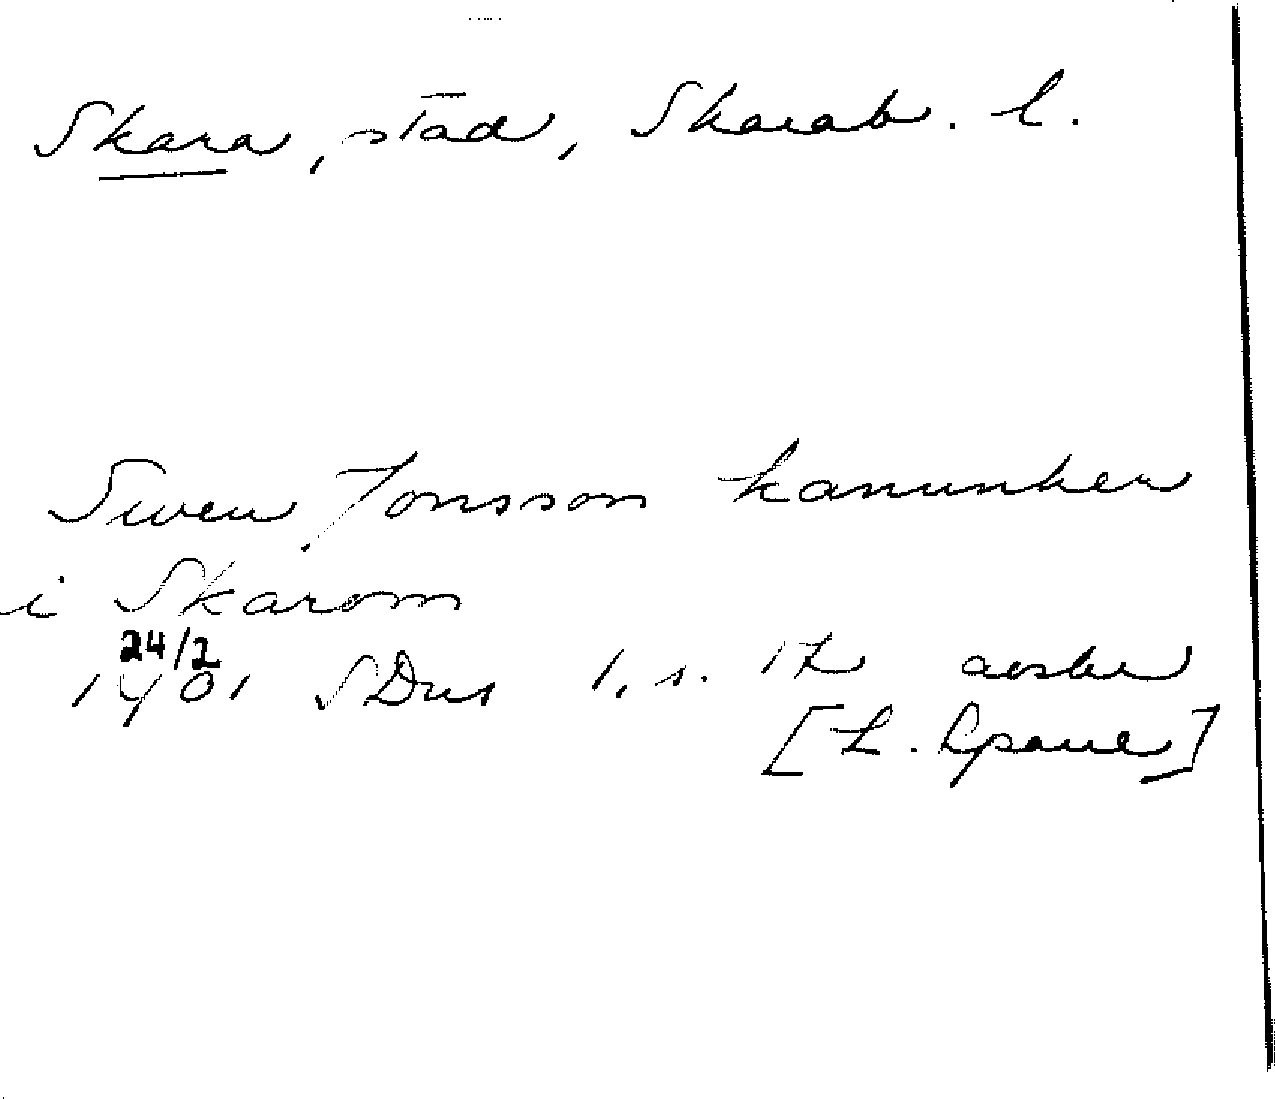 Skara, stad, Skarab. l.
Swen Jonsson kanunken
i Skarom
24/2
1401 SDns 1, s. 17